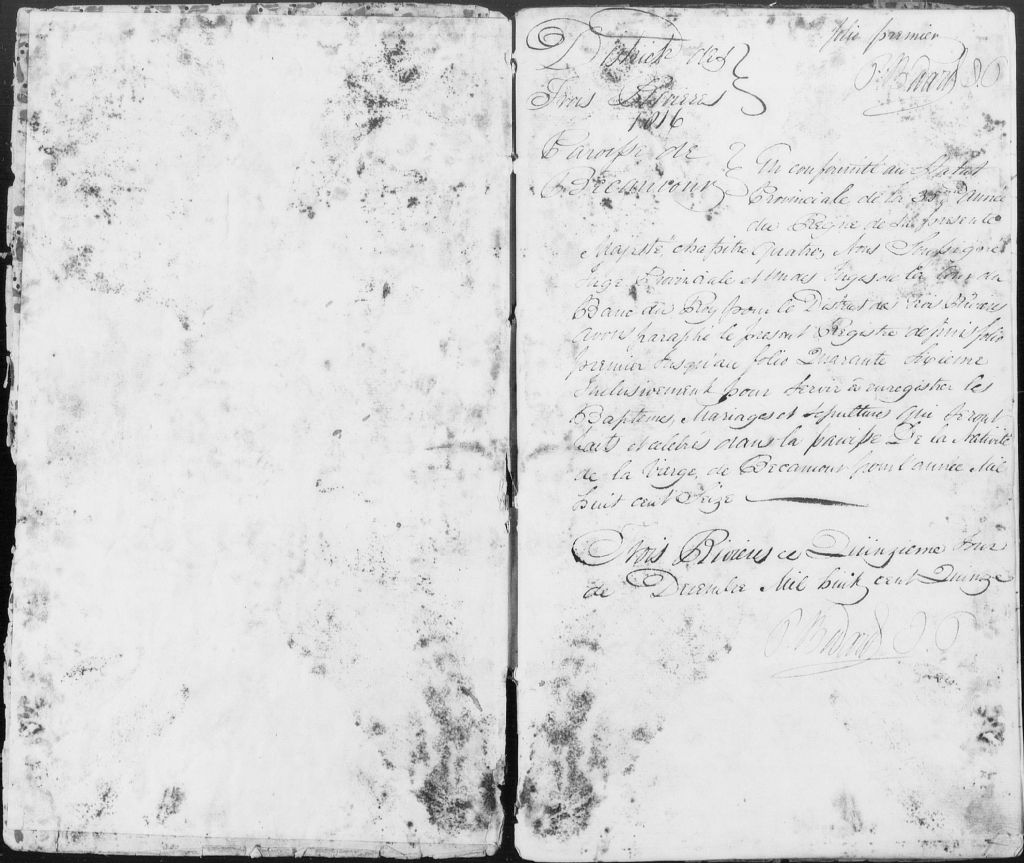 folio premier
P. Bédard J.P.
District des
Trois Rivieres
1816
Paroisse de
Becancour
En conformité au Statut
Provinciale de la 35e Année
du Regne de Sa presente
Majesté, chapitre Quatre, Nous Soussigné
Juge Provinciale et un des Juges de la Cour du
Banc du Roy pour le District des Trois Rivieres
avons paraphé le present Régistre depuis folio
premier Jusqu'au folio Quarante
Inclusivement pour servir à enregistrer les
Baptêmes, Mariages et Sepultures qui seront
faits et celebrés dans la paroisse De la Nativité
de la Vierge, de Becancour pour l'année Mil
huit cent Seize
Trois Rivieres ce Quinzieme Jour
de Decembre Mil huit cent Quinze
P. Bédard J.P.